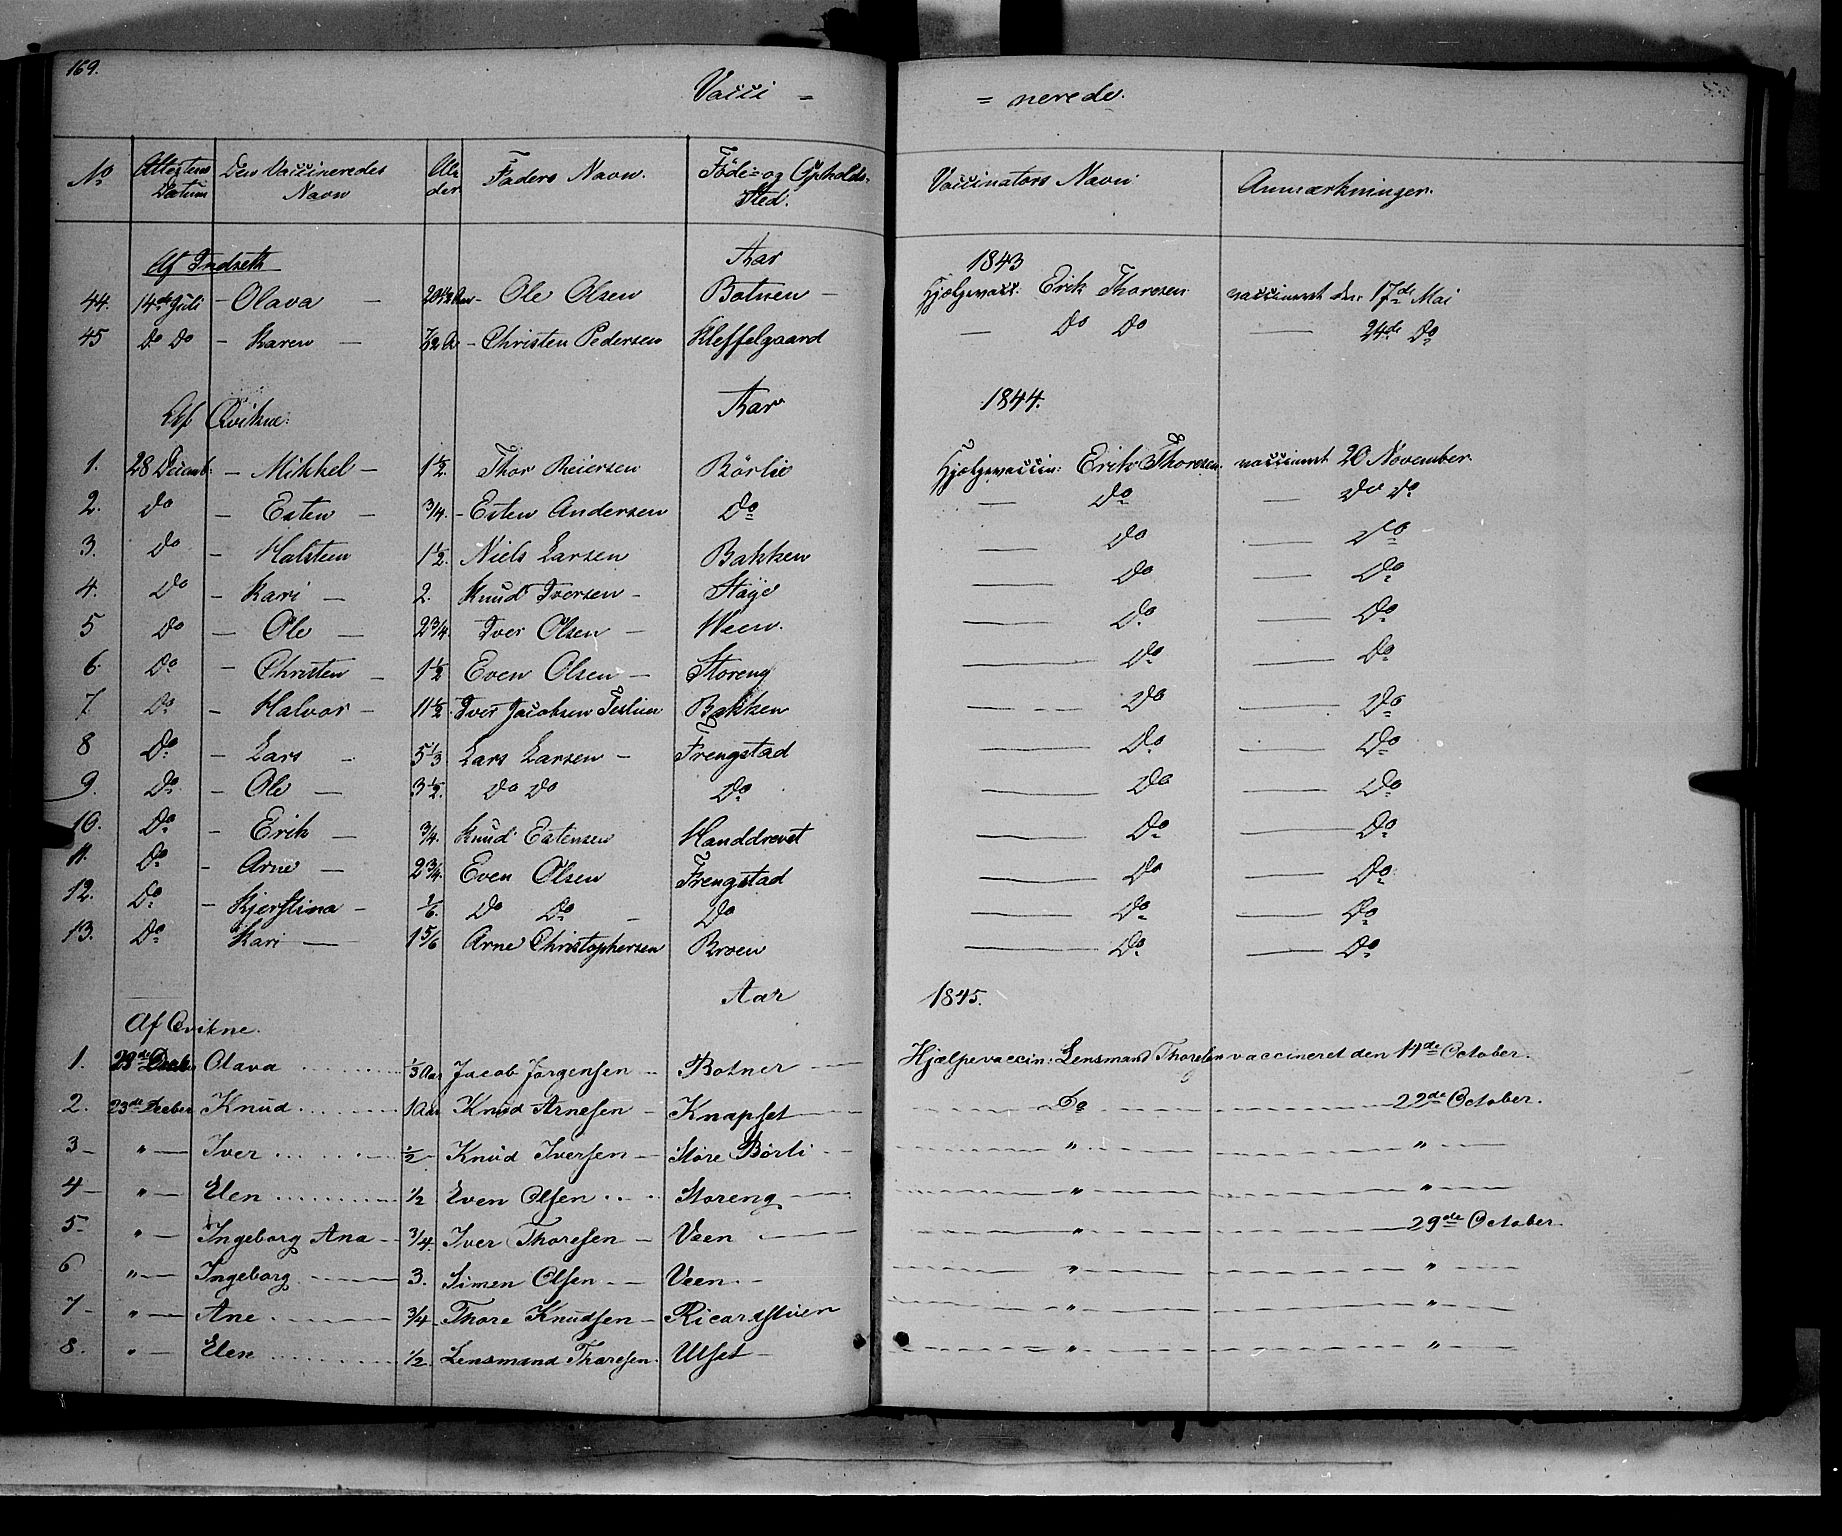 169.
Vacci = = nerede.
No Attestens Datum Den Vaccineredes Navn Alder Faders Navn. Føde- og Opholds-Sted. Vaccinators Navn Anmærkninger.
Af Indseth Aar 1843
44. 14de Juli - Olava - Ole Olsen Botnen - Hjelpevacc: Erik Thoresen vaccineret den 17de Mai
45 Do Do - Karen - Christen Pedersen Kleffelgaard - Do Do - 24de Do
Af Qvikne: Aar 1844.
1. 28 Decemb: - Mikkel - 1½ Thor Reiersen Børlie Hjelpevaccin: Erik Thoresen vaccineret 20 November
2. Do - Esten - 3/4. - Esten Andersen Do - Do - Do Do
3. Do - Halsteen 1½. Niels Larsen Bakken - Do - Do
4. Do - Kari - 2. Knud Iversen - Støye - Do - Do
5 Do - Ole - 2 3/4. Iver Olsen - Veen. - Do - Do
6. Do - Christen - 1½ Even Olsen - Storeng - Do - Do
7. Do - Halvor - 11½. Iver Jacobsen Bakken - Do - Do
8 Do - Lars - 5 1/3 Lars Larsen - Frengstad - Do - Do
9. Do - Ole - 3½. Do Do Do - Do - Do
10. Do - Erik - 3/4. Knud Estensen Handdrevet - Do - Do
11. Do - Arne - 2 3/4. Even Olsen Frengstad - Do - Do
12. Do - Kjerstina - 1/6. Do Do - Do - Do - Do
13. Do Kari - 1 5/6 Arne Christophersen Broen - Do - Do
Aar 1845.
Af Qvikne.
1. Olava ........ 1/3 Aar Jacob Jørgensen - Botner - Hjælpevaccin: Lensmand Thoresen vaccineret den 14de October.
2. 23de Decber Knud ....... 1 Aar Knud Arnesen - Knapset - Do - 22de October.
3 - " - Iver ........ ½ - Knud Iversen - Store Børli - " - " -
4 - " - Elen ........ ½ Even Olsen .... Storeng - " - " -
5 - " - Ingeborg Ana - 3/4. Iver Thoresen - Veen - " - 29de October
6 " - Ingeborg - 3. Simen Olsen - Veen - " - " -
7 - " - Ane ........ 3/4 Thore Knudsen - Ricardstuen - " - " -
8. " - Elen ........ ½ Lensmand Thoresen. Ulset - " - " -